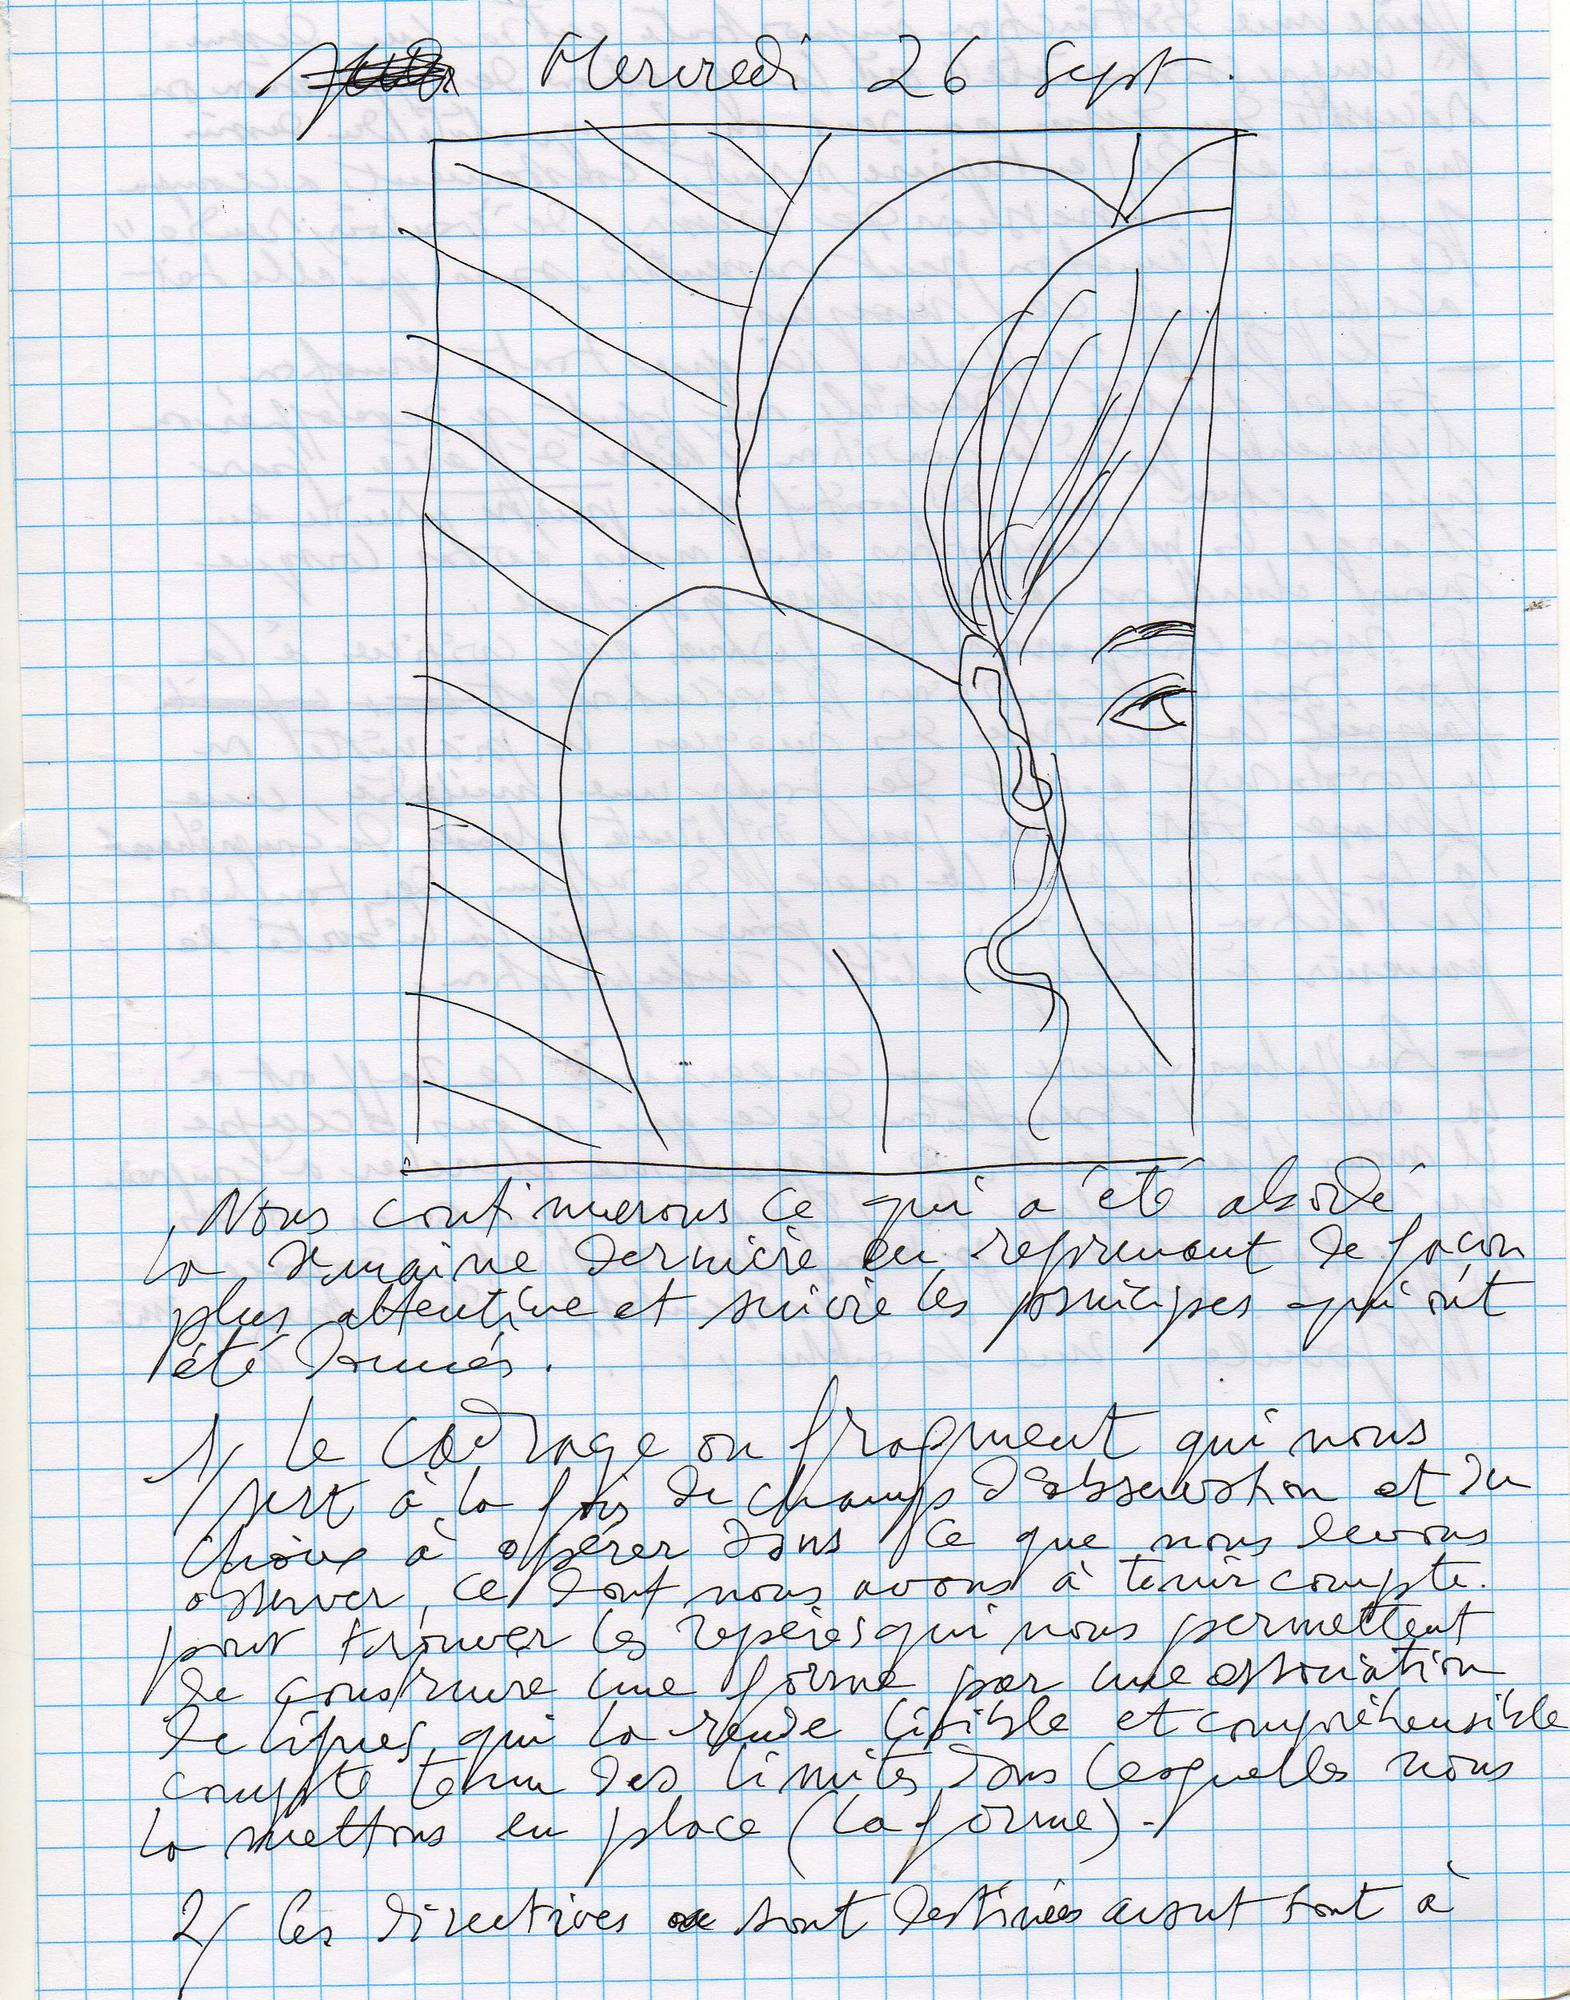 Mercredi 26 Sept.
Nous continuerons ce qui a été abordé
la semaine dernière en reprenant de façon
plus attentive et suivie les principes qui ont
été donnés.
1/ Le Cadrage ou fragment qui nous
sert à la fois de champs d'observation et du
choix à opérer dans ce que nous devons
observer, ce dont nous avons à tenir compte.
pour trouver les repères qui nous permettent
de construire une forme par une association
de lignes, qui la rende lisible et compréhensible
compte tenu des limites dans lesquelles nous
la mettons en place (la forme).
2/ Les directives sont destinées avant tout à